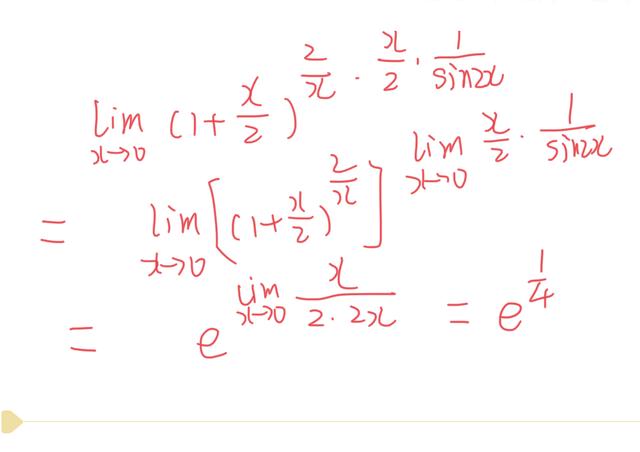 lim x→0 (1+x/2)^(2/x · x/2 · 1/sin2x)
= lim x→0 [(1+x/2)^(2/x)]^(lim x→0 x/2 · 1/sin2x)
= e^(lim x→0 x/(2·2x)) = e^(1/4)